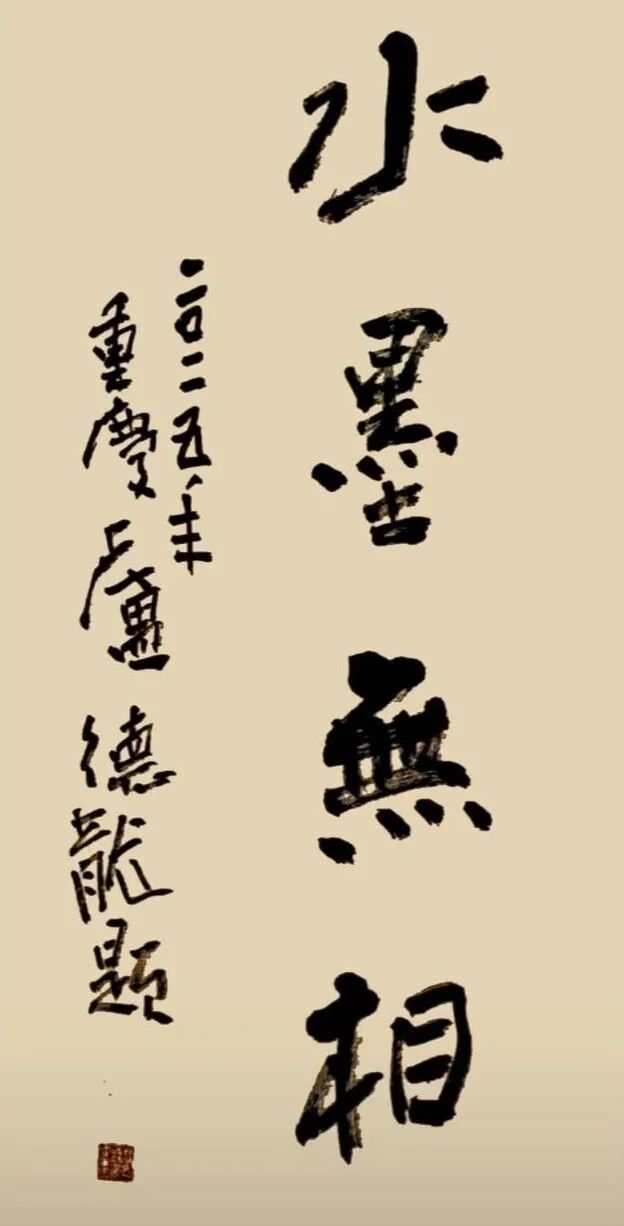 水墨無相
二〇二五年
重慶盧德龍題